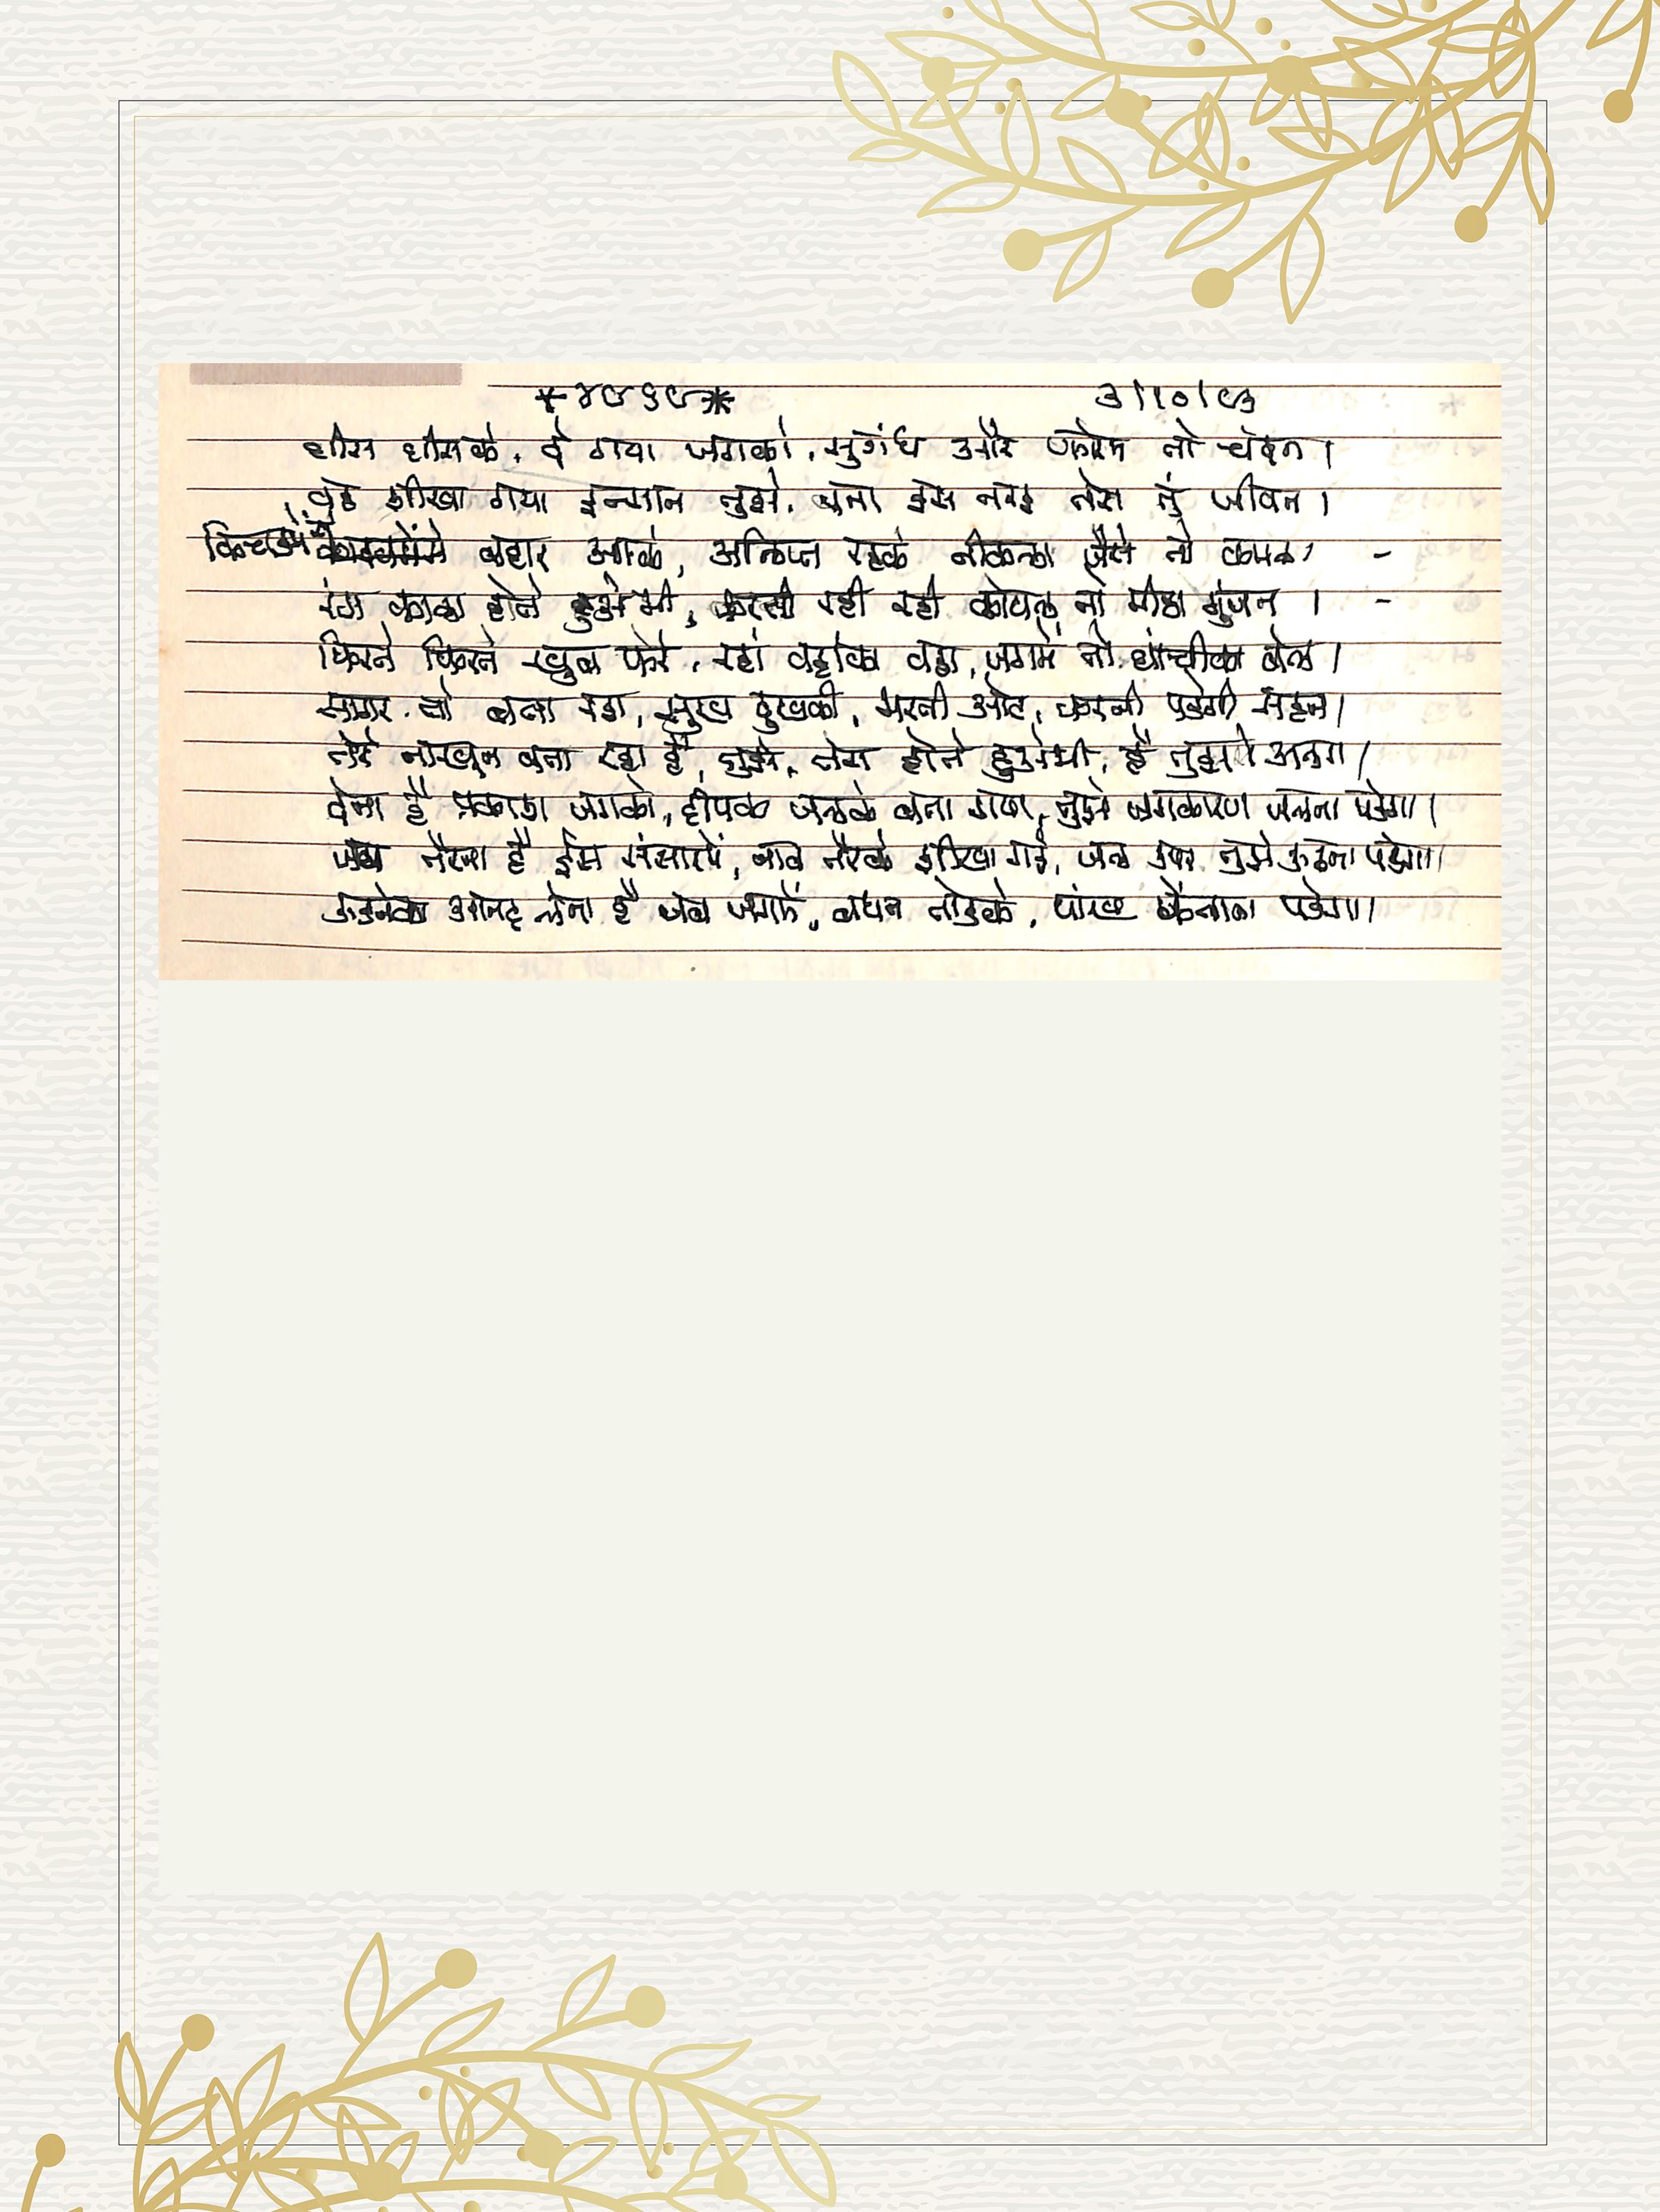 *४८९८* ३/१०/८३
धीस धीसके, दे गया जगको, सुगंध और फोरम तो चंदन।
वह शीखा गया इन्सान तुझे, बना इस तरह तेरा तुं जीवन।
किचडमेंसे बहार आके, अलिप्त रहके नीकला जैसे तो कमल,
रंग काला होते हुअे भी, करती रही रही कोयल तो मीठा गुंजन।
फिरते फिरते खुब फेरे, रहा वहांका वहा, जगमें तो धांचीका बेल।
सागर तो बना रहा, सुख दुखकी, भरती ओट, करनी पडेगी सहन।
तेरे नाखून बता रहा है, तुझे, तेरा होते हुअेभी, है तुझसे अलग।
देना है प्रकाश जगको, दीपक जलके बता गया, तुझे जगकारण जलना पडेगा।
जब तैरना है ईस संसारमें, नाव तैरके शीखा गई, जल उपर तुझे उठना पडेगा।
उडनेका आनंद लेना है जब जगमें, बंधन तोडके, पांख फैलाना पडेगा।